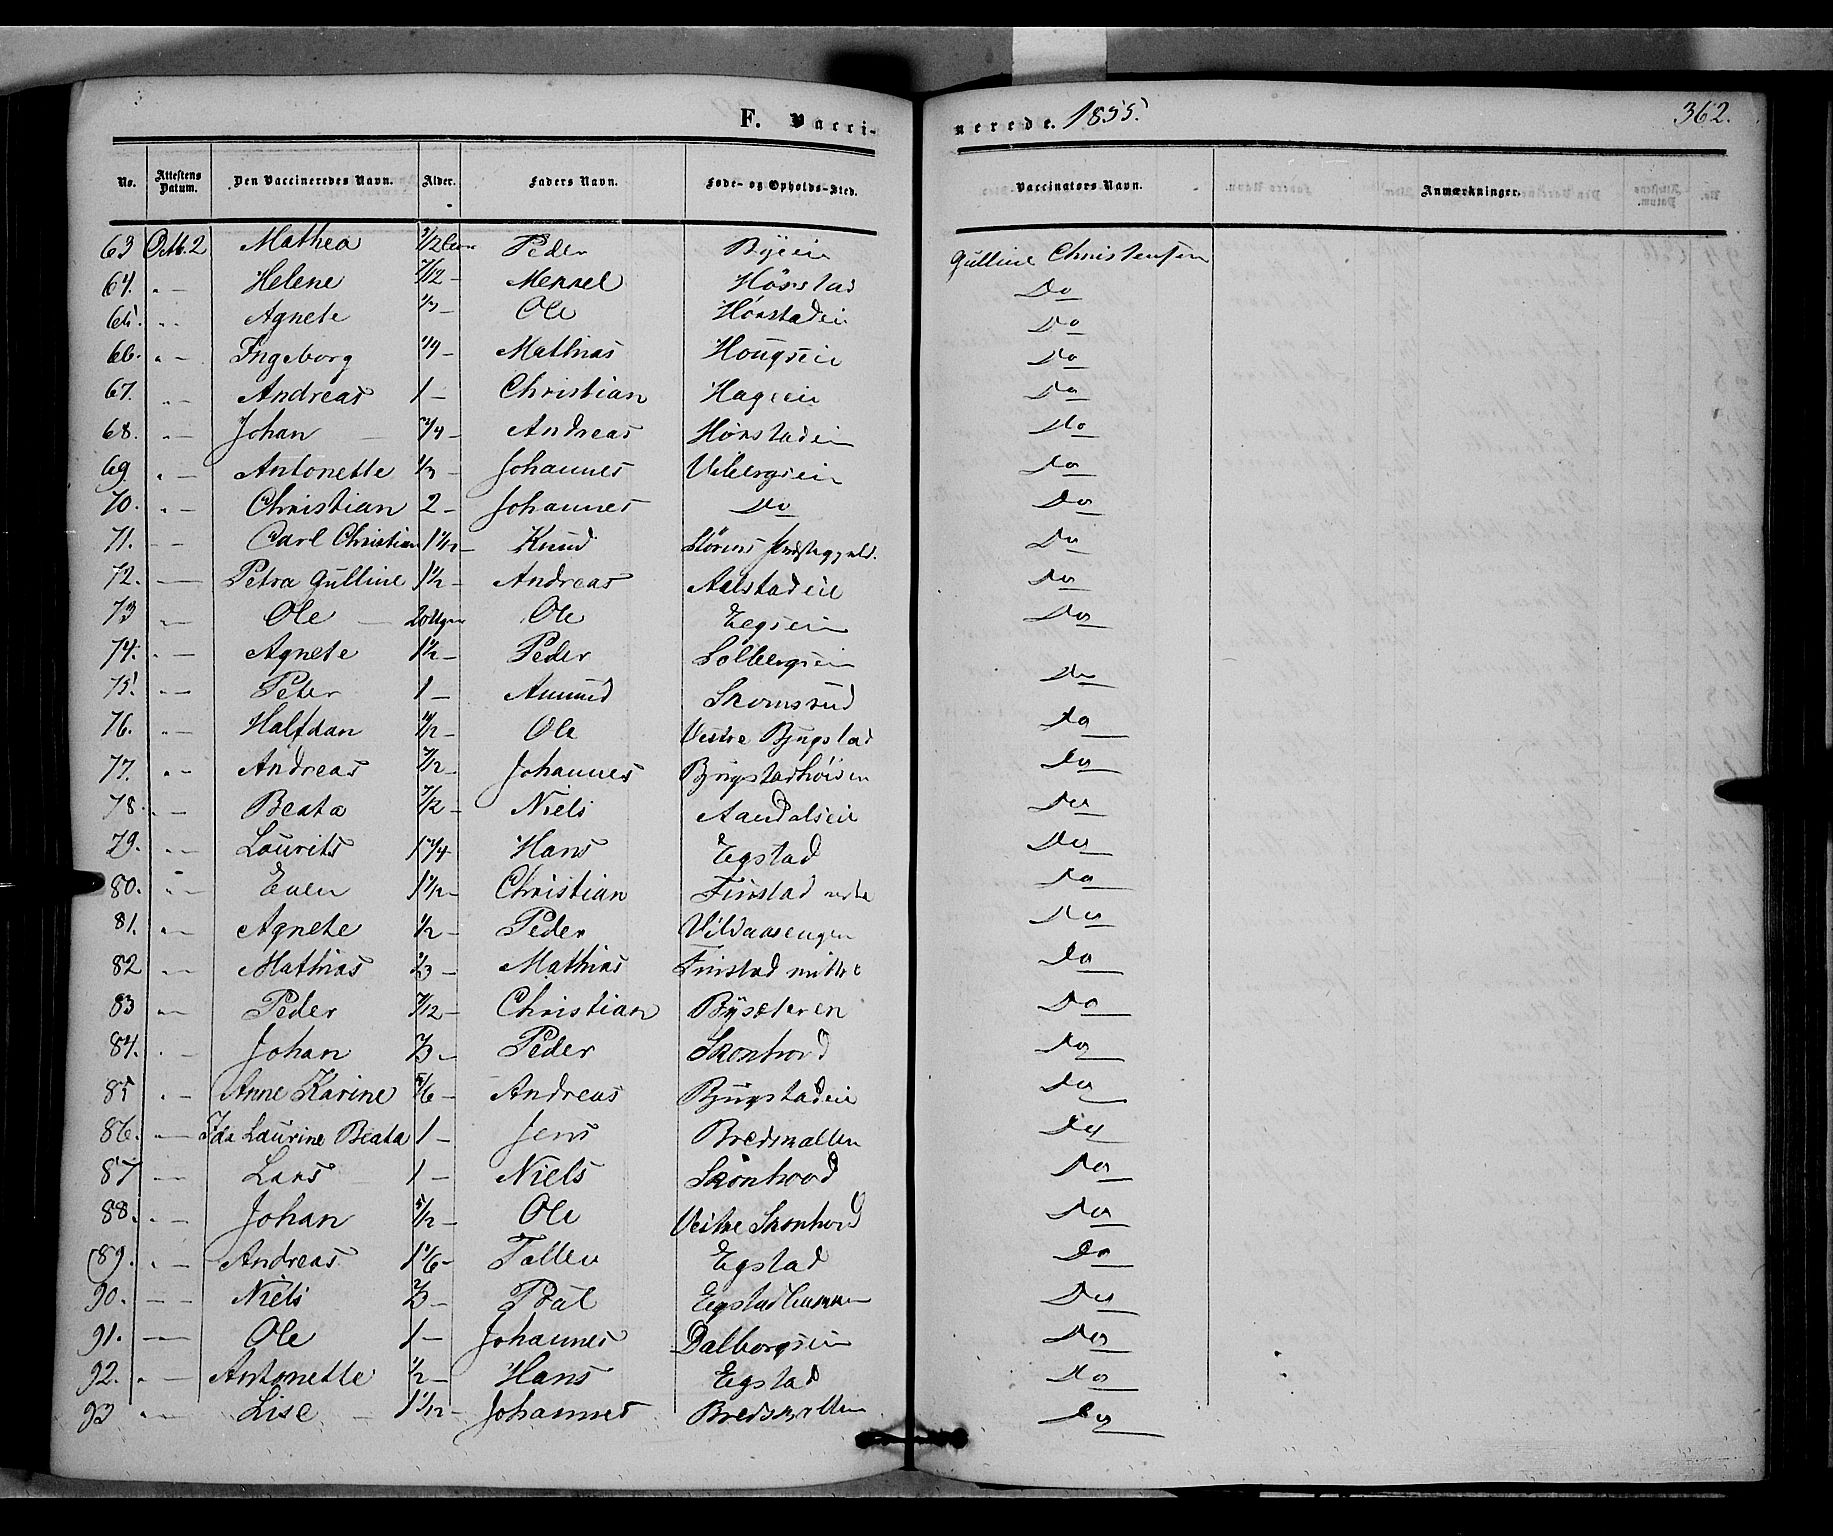 F. Vacci-
nerede. 1855.
362.
No. Attestens Datum. Den Vaccineredes Navn. Alder. Faders Navn. Føde- og Opholds-Sted. Vaccinators Navn. Anmærkninger.
63 Octb. 2 Mathea Peder Byeie Gulline Christensen
64. " — Helene 7/12 — Mensel Hönstad Do
65. " — Agnete Ole Hönstadeie Do
66. " — Ingeborg Mathias Hougseie Do
67. " — Andreas 1 — Christian Hageeie Do
68. " — Johan 3/4 — Andreas Hönstadeie Do
69 " — Antonette 1/3 — Johannes Vibergseie Do
70. " — Christian 2 — Johannes Do Do
71. — Carl Christian 1 1/2 — Knud Do
72. — Petra Gulline 1 1/2 — Andreas Aalstadeie Do
73 " — Ole 20 Uger Ole Eegseie Do
74. " — Agnete 1 1/2 — Peder Solbergseie
75. " — Peter 1 — Amund Skomsrud Do
76. " — Halfdan Ole Vestre Bjugstad Do
77. " — Andreas 7/12 — Johannes Bjugstadhöisen Do
78. " — Beata 7/12 — Niels Aandalseie Do
79. " — Laurits 1 3/4 Hans Egstad Do
80. " — Even 1 1/2 — Christian Finstad Do
81. " — Agnete 1/2 — Peder Vildaasengen Do
82 " — Mathias 2/3 — Mathias Finstad mittre Do
83 " — Peder 7/12 — Christian Bÿsæteren Do
84. " — Johan 2/3 — Peder Skonhovd Do
85 " — Anne Karine 5/6 — Andreas Bjugstadeie Do
86. " — Ida Laurine Beata 1 — Jens Bredsvatten Do
87 " — Lars 1 — Niels Skonhovd Do
88. " — Johan 5/12 — Ole Vestre Skonhovd Do
89. " — Andreas 1 1/6 — Tollev Egstad Do
90. — Niels 2/3 — Poul Do
91. — Ole 1 — Johannes Dalborgseie Do
92. " — Antonette 1/2 — Hans Egstad Do
93 " — Lise 1 1/12 — Johannes Bredsvatten Do